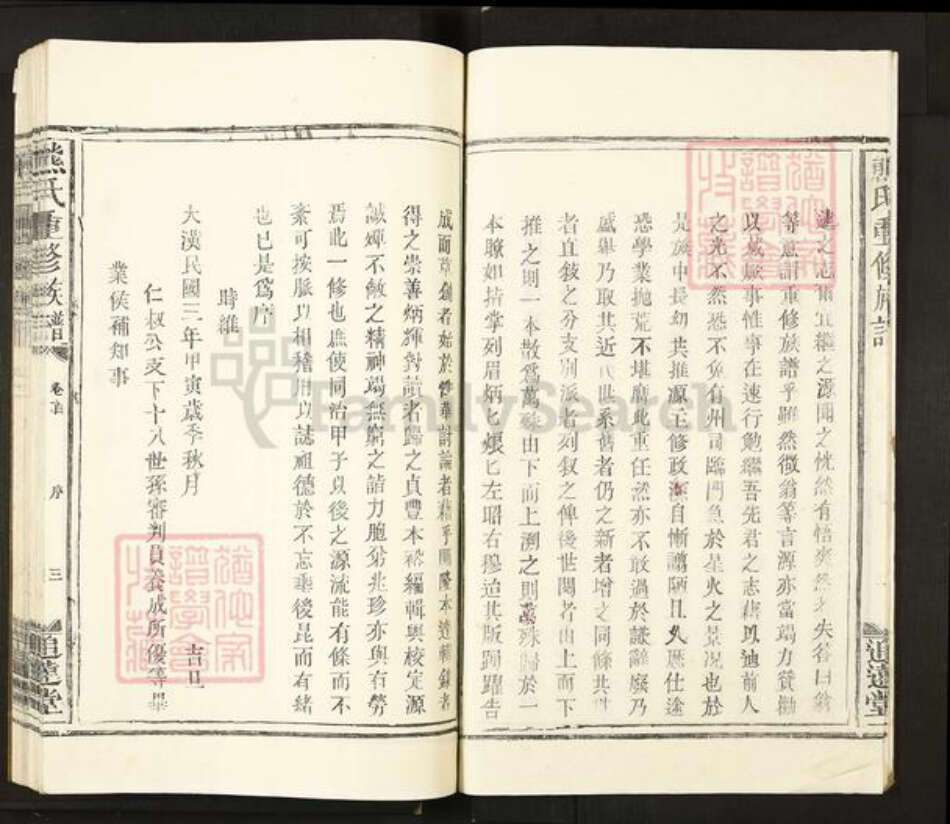 熊氏重修族譜
追遠堂
述之志有宜繼之源聞之恍然有悟爽然若失答曰翁
等意計重修族譜乎雖然微翁等言源亦當竭力贊勷
以成厥事惟事在速行勉繼吾先君之志藉以迪前人
之光不然恐不免有州司臨門急於星火之景况也於
是族中長幼共推源主修政源自慚譾陋且久歷仕途
恐學業拋荒不堪膺此重任然亦不敢過於謙辭廢乃
盛舉乃取其近代世系舊者仍之新者增之同條共
者直敍之分支別派者列敍之俾後世閱者由上而下
推之則一本散爲萬殊由下而上溯之則萬殊歸於一
本瞭如指掌列眉炳炳烺烺左昭右穆迨其版蹋躍告
成而草創者始於 華討論者藉乎 隆本達 錄者
得之崇善炳輝對讀者歸之貞豐本裕編輯與校定源
誠殫不敏之精神竭無窮之詣力胞弟兆珍亦與有勞
焉此一修也庶使同治甲子以後之源流能有條而不
紊可按脈以相稽用以誌祖德於不忘垂後昆而有緒
也已是爲序
時維
大漢民國三年甲寅歲季秋月 吉旦
仁叔公支下十八世孫審判員養成所優等畢
業侯補知事
熊氏重修族譜 卷首 序 三 追遠堂
FamilySearch